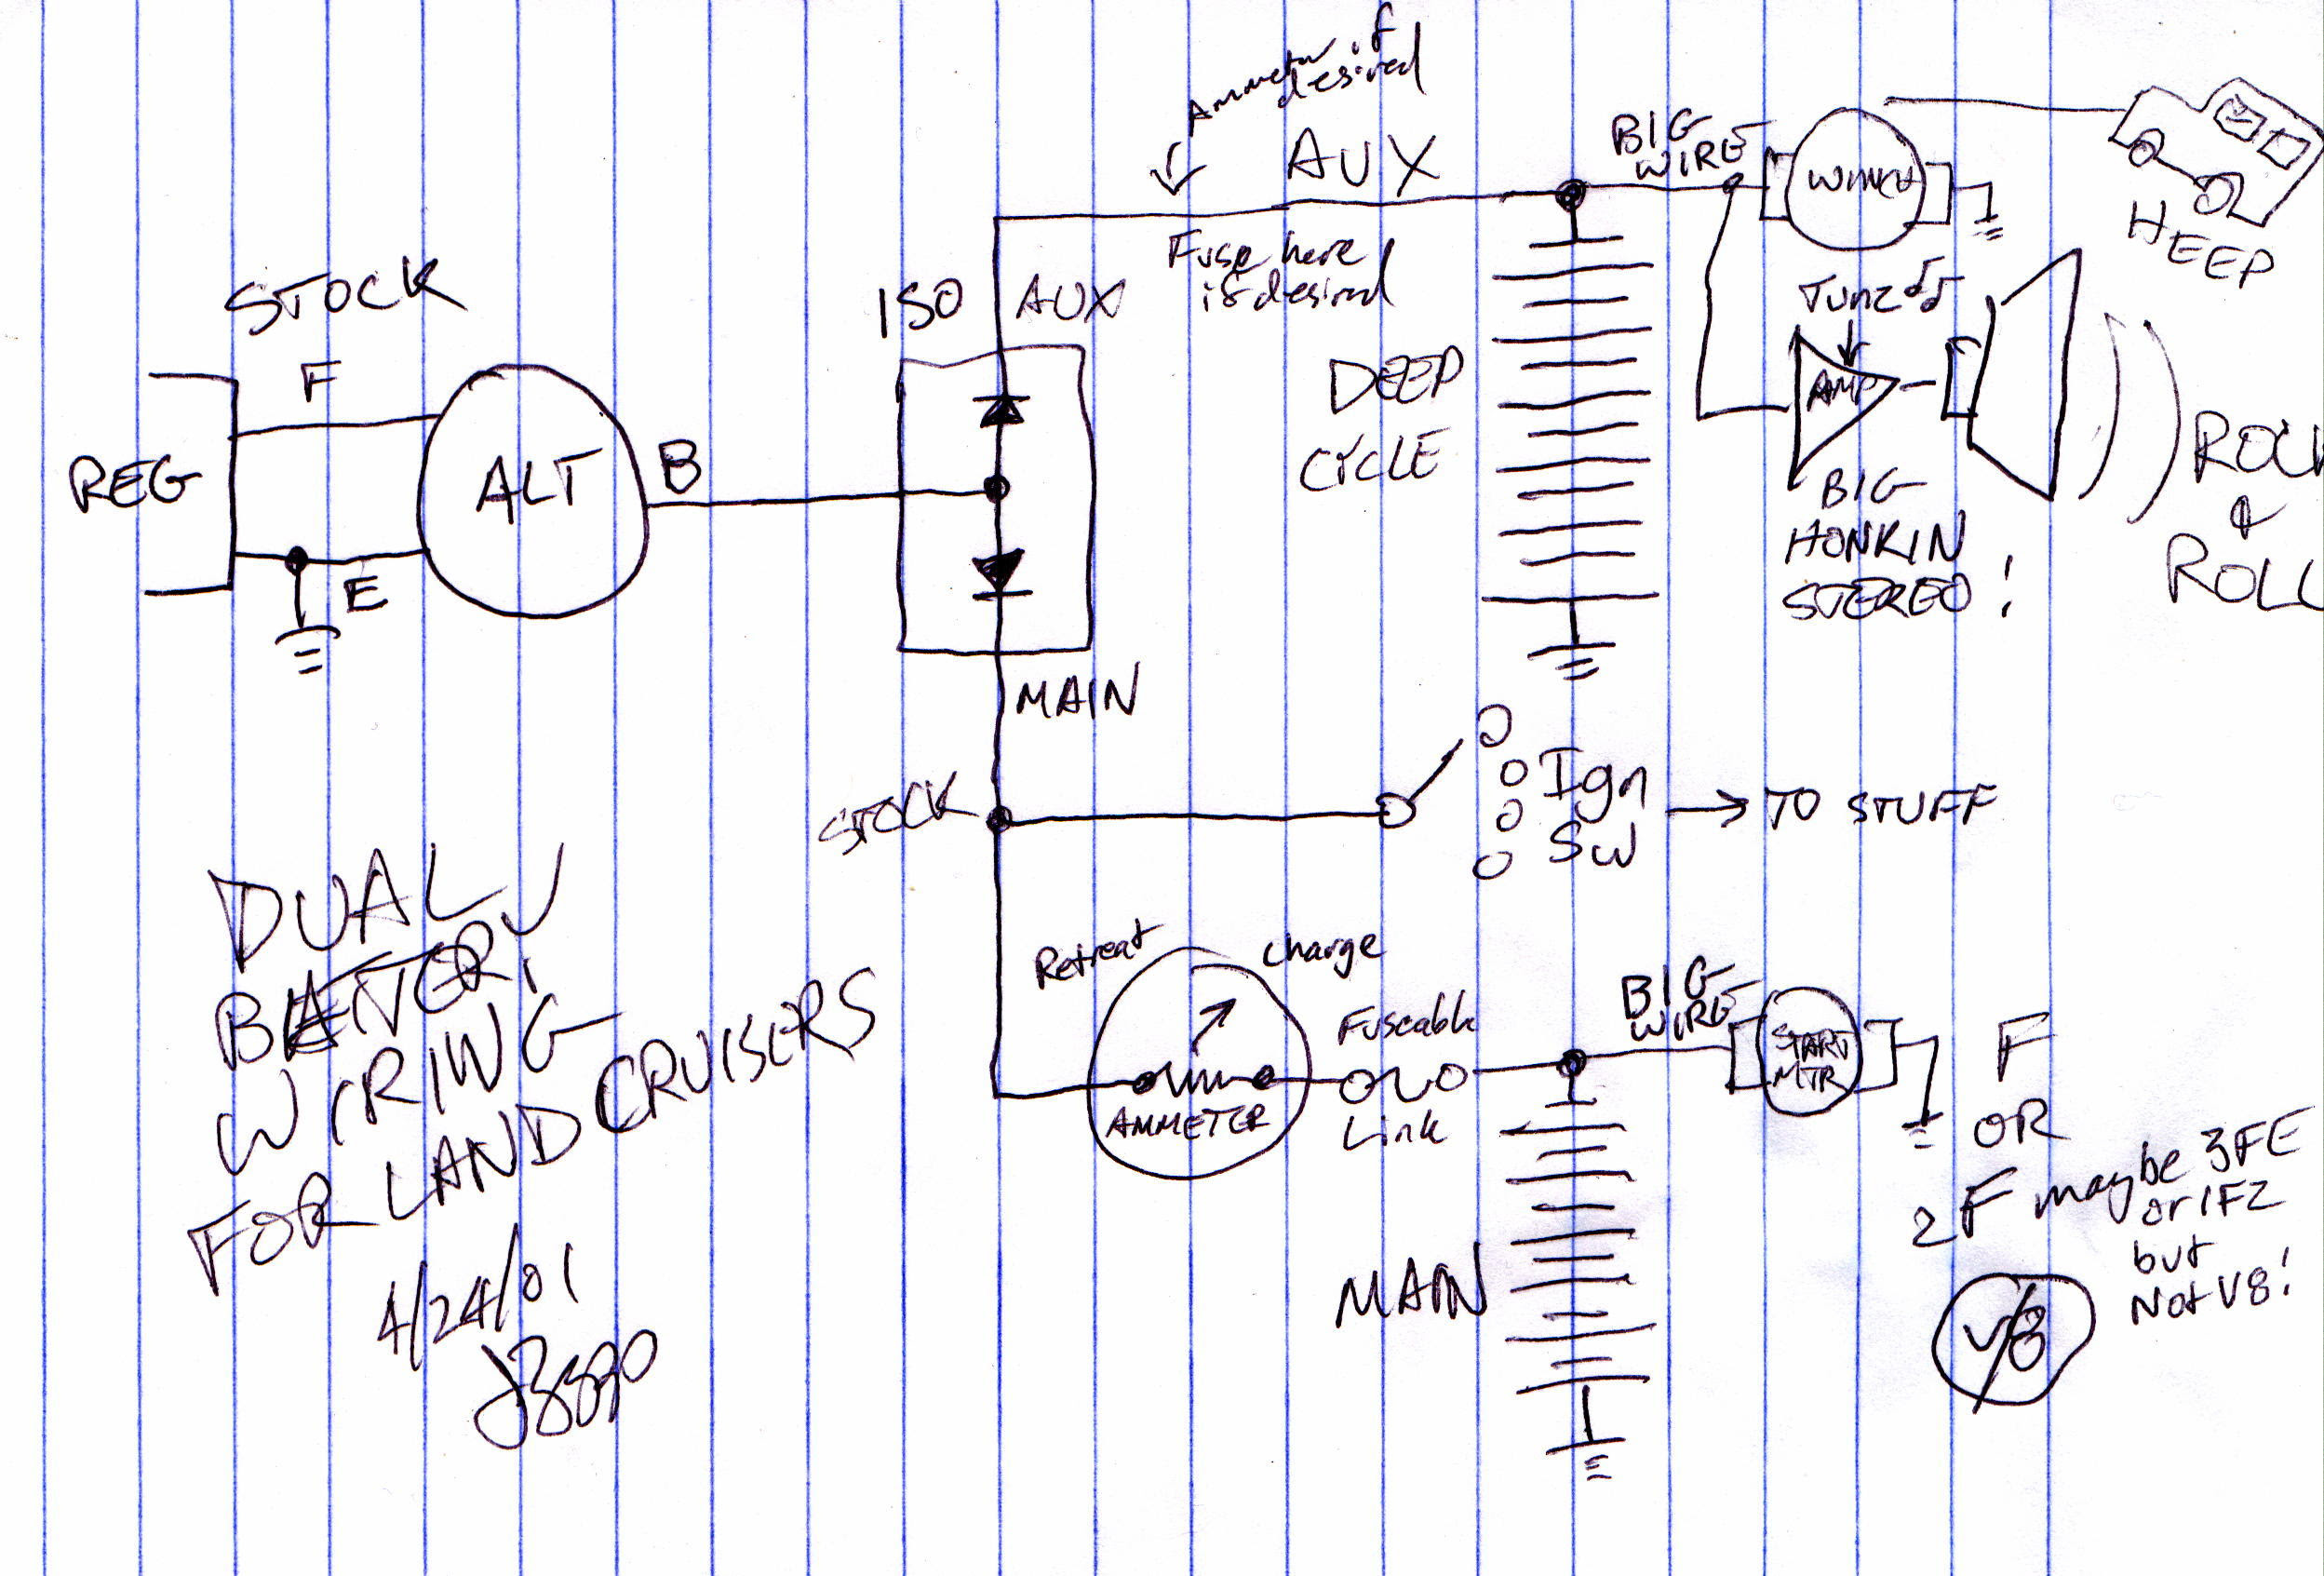 Ammeter if
desired
AUX
Fuse here
if desired
BIG
WIRE
WINCH
HEEP
STOCK
F
REG
E
ALT
B
ISO
AUX
MAIN
DEEP
CYCLE
Tunz
AMP
BIG
HONKIN
STEREO!
ROCK
&
ROLL
STOCK
Ign
SW
TO STUFF
Retreat
Charge
AMMETER
Fuseable
Link
BIG
WIRE
START
MTR
MAIN
F
OR
2F maybe 3FE
or 1FZ
but
Not V8!
V8
DUAL
BATTERY
WIRING
FOR LAND CRUISERS
4/24/01